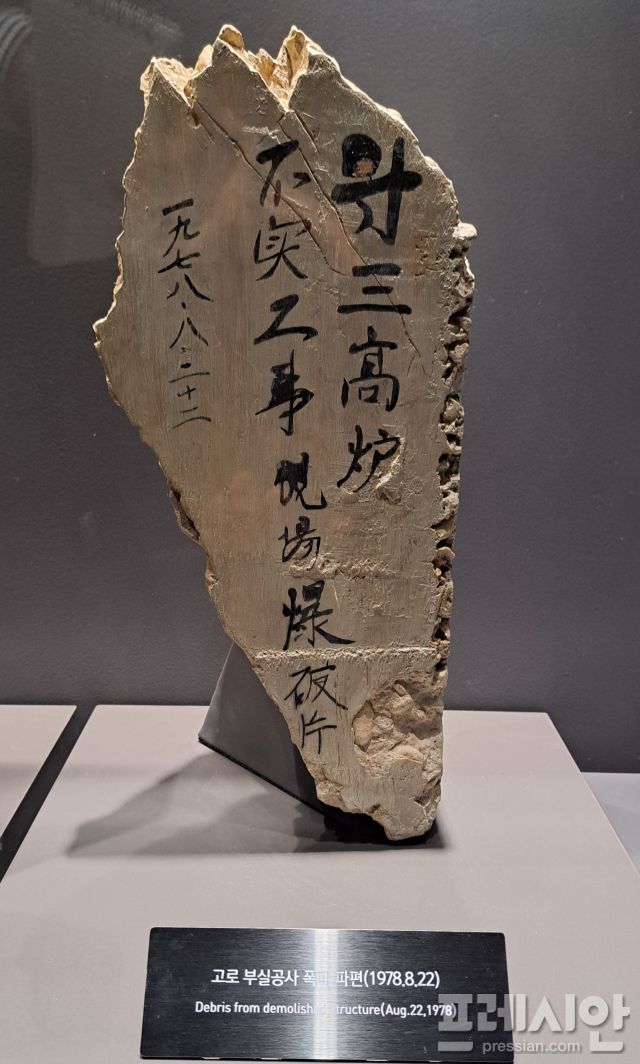 第三高炉
不実工事現場爆破片
一九七八·八·二十二
고로 부실공사 폭파 파편(1978.8.22)
Debris from demolished structure(Aug.22,1978)
프레시안
pressian.com